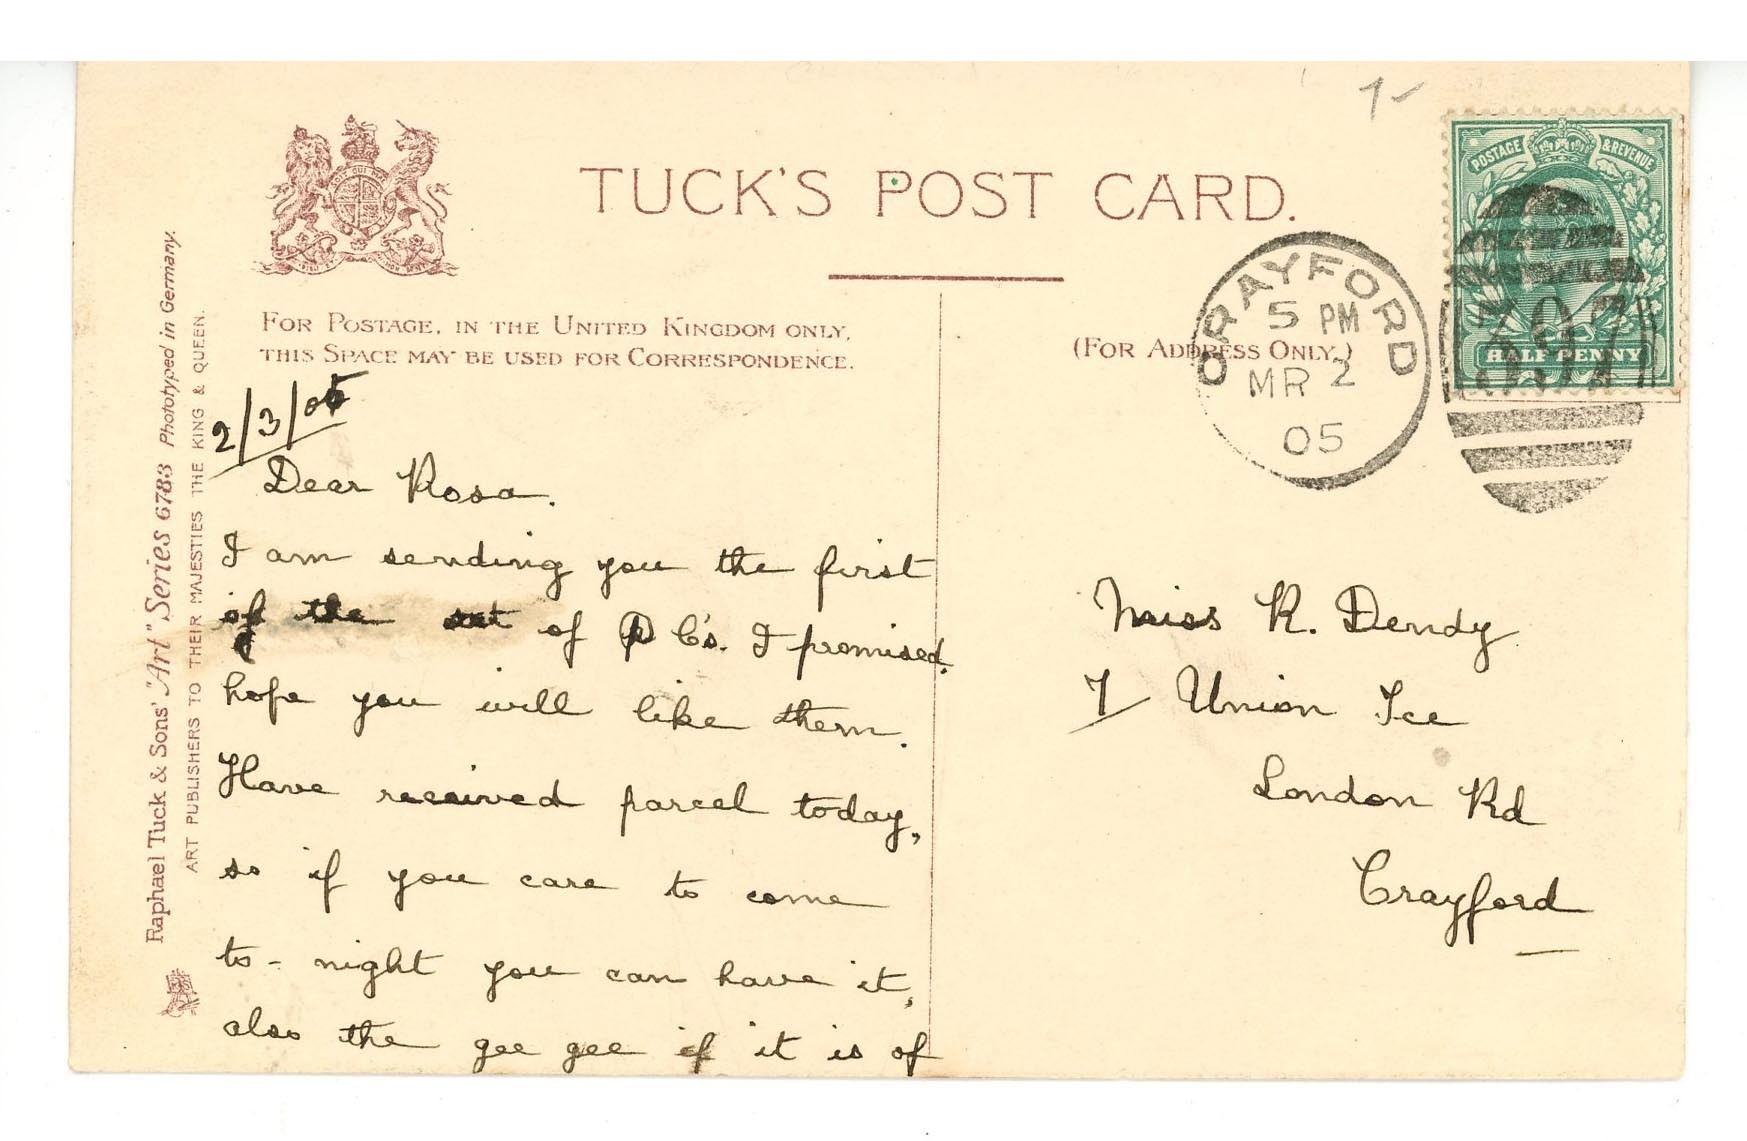 TUCK'S POST CARD.
FOR POSTAGE, IN THE UNITED KINGDOM ONLY,
THIS SPACE MAY BE USED FOR CORRESPONDENCE.
(FOR ADDRESS ONLY.)
POSTAGE & REVENUE
HALF PENNY
397
CRAYFORD
5 PM
MR 2
05
7-
Raphael Tuck & Sons' "Art" Series 6783 Phototyped in Germany.
ART PUBLISHERS TO THEIR MAJESTIES THE KING & QUEEN.
2/3/05
Dear Rosa.
I am sending you the first
of the set of P C's. I promised.
hope you will like them.
Have received parcel today,
so if you care to come
to-night you can have it,
also the gee gee if it is of
Miss R. Dendy
7/ Union Tce
London Rd
Crayford